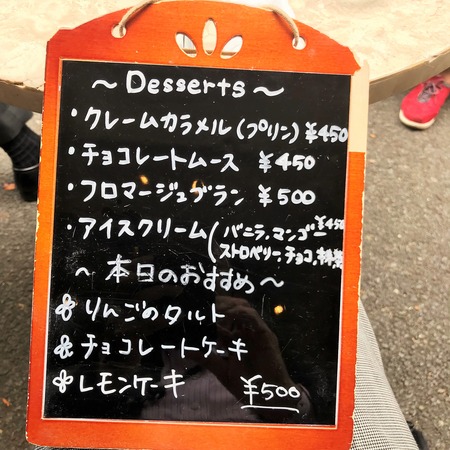 ～Desserts～
・クレームカラメル(プリン)¥450
・チョコレートムース ¥450
・フロマージュブラン ¥500
・アイスクリーム(バニラ,マンゴー ¥450
ストロベリー チョコ,抹茶)
～本日のおすすめ～
りんごのタルト
チョコレートケーキ
レモンケーキ ¥500